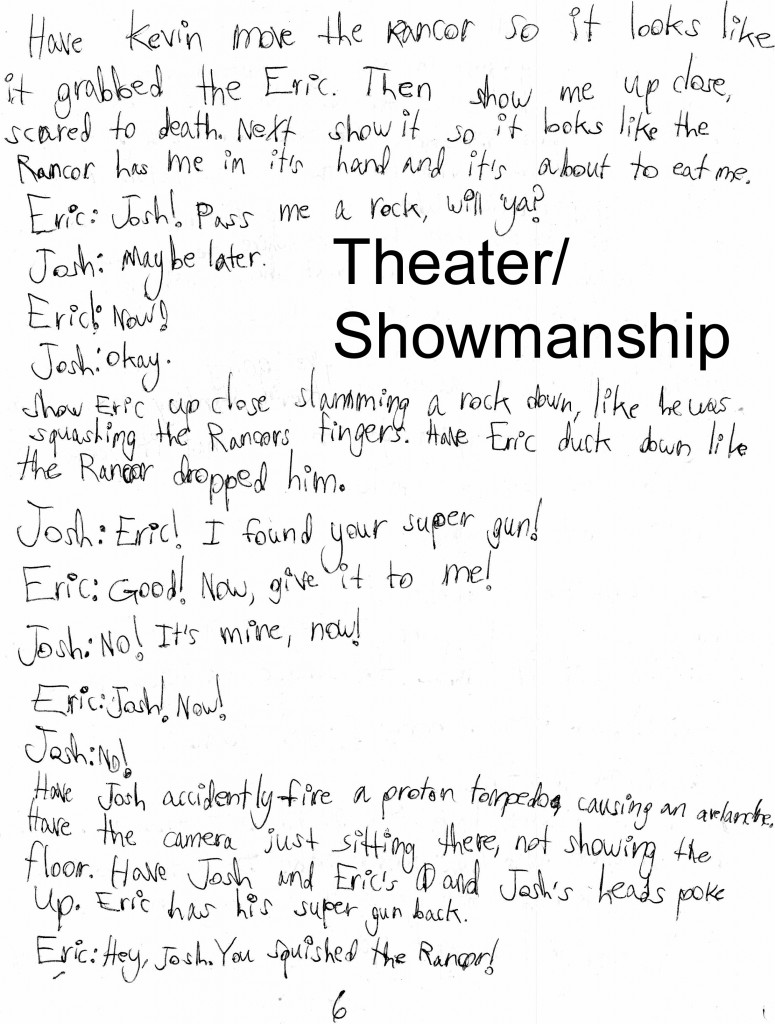 Have Kevin move the Rancor so it looks like
it grabbed the Eric. Then show me up close,
scared to death. Next show it so it looks like the
Rancor has me in it's hand and it's about to eat me.
Eric: Josh! Pass me a rock, will ya?
Josh: Maybe later.
Eric: Now!
Josh: Okay.
Theater/
Showmanship
Show Eric up close slamming a rock down, like he was
squashing the Rancors fingers. Have Eric duck down like
the Rancor dropped him.
Josh: Eric! I found your super gun!
Eric: Good! Now, give it to me!
Josh: No! It's mine, now!
Eric: Josh! Now!
Josh: No!
Have Josh accidently fire a proton torpedo, causing an avalanche.
Have the camera just sitting there, not showing the
floor. Have Josh and Eric's and Josh's heads poke
up. Eric has his super gun back.
Eric: Hey, Josh. You squished the Rancor!
6